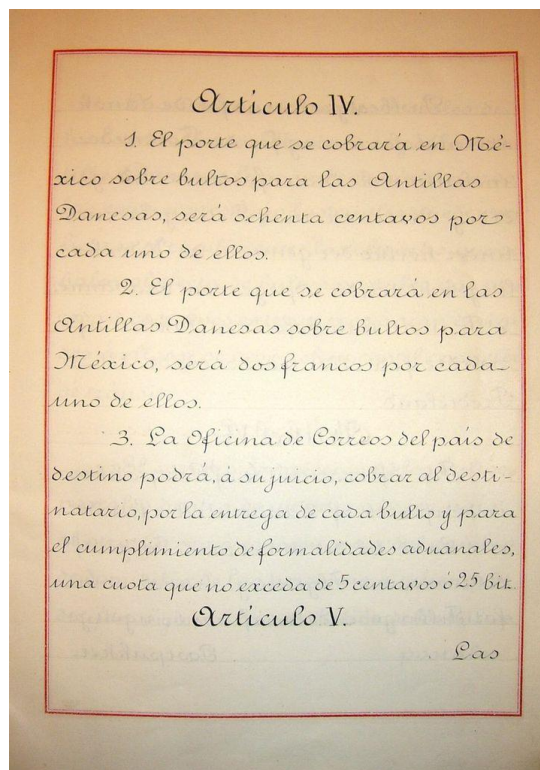 Artículo IV.
1. El porte que se cobrará en Mé-
xico sobre bultos para las Antillas
Danesas, será ochenta centavos por
cada uno de ellos.
2. El porte que se cobrará en las
Antillas Danesas sobre bultos para
México, será dos francos por cada
uno de ellos.
3. La Oficina de Correos del país de
destino podrá, á su juicio, cobrar al desti-
natario, por la entrega de cada bulto y para
el cumplimiento de formalidades aduanales,
una cuota que no exceda de 5 centavos ó 25 bit.
Artículo V.
Las